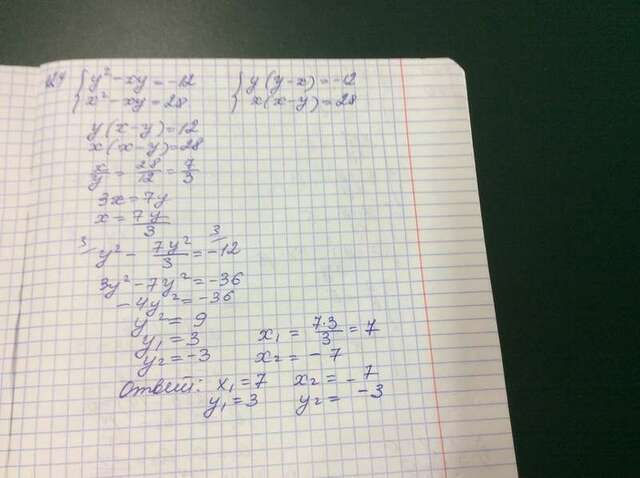 424 { y² - xy = -12   { y(y-x) = -12
x² - xy = 28   x(x-y) = 28
y(x-y) = 12
x(x-y) = 28
x/y = 28/12 = 7/3
3x = 7y
x = 7y/3
3/ y² - 7y²/3 = 3/ -12
3y² - 7y² = -36
-4y² = -36
y² = 9
y₁ = 3   x₁ = 7·3/3 = 7
y₂ = -3   x₂ = -7
Ответ: x₁ = 7   x₂ = -7
y₁ = 3   y₂ = -3